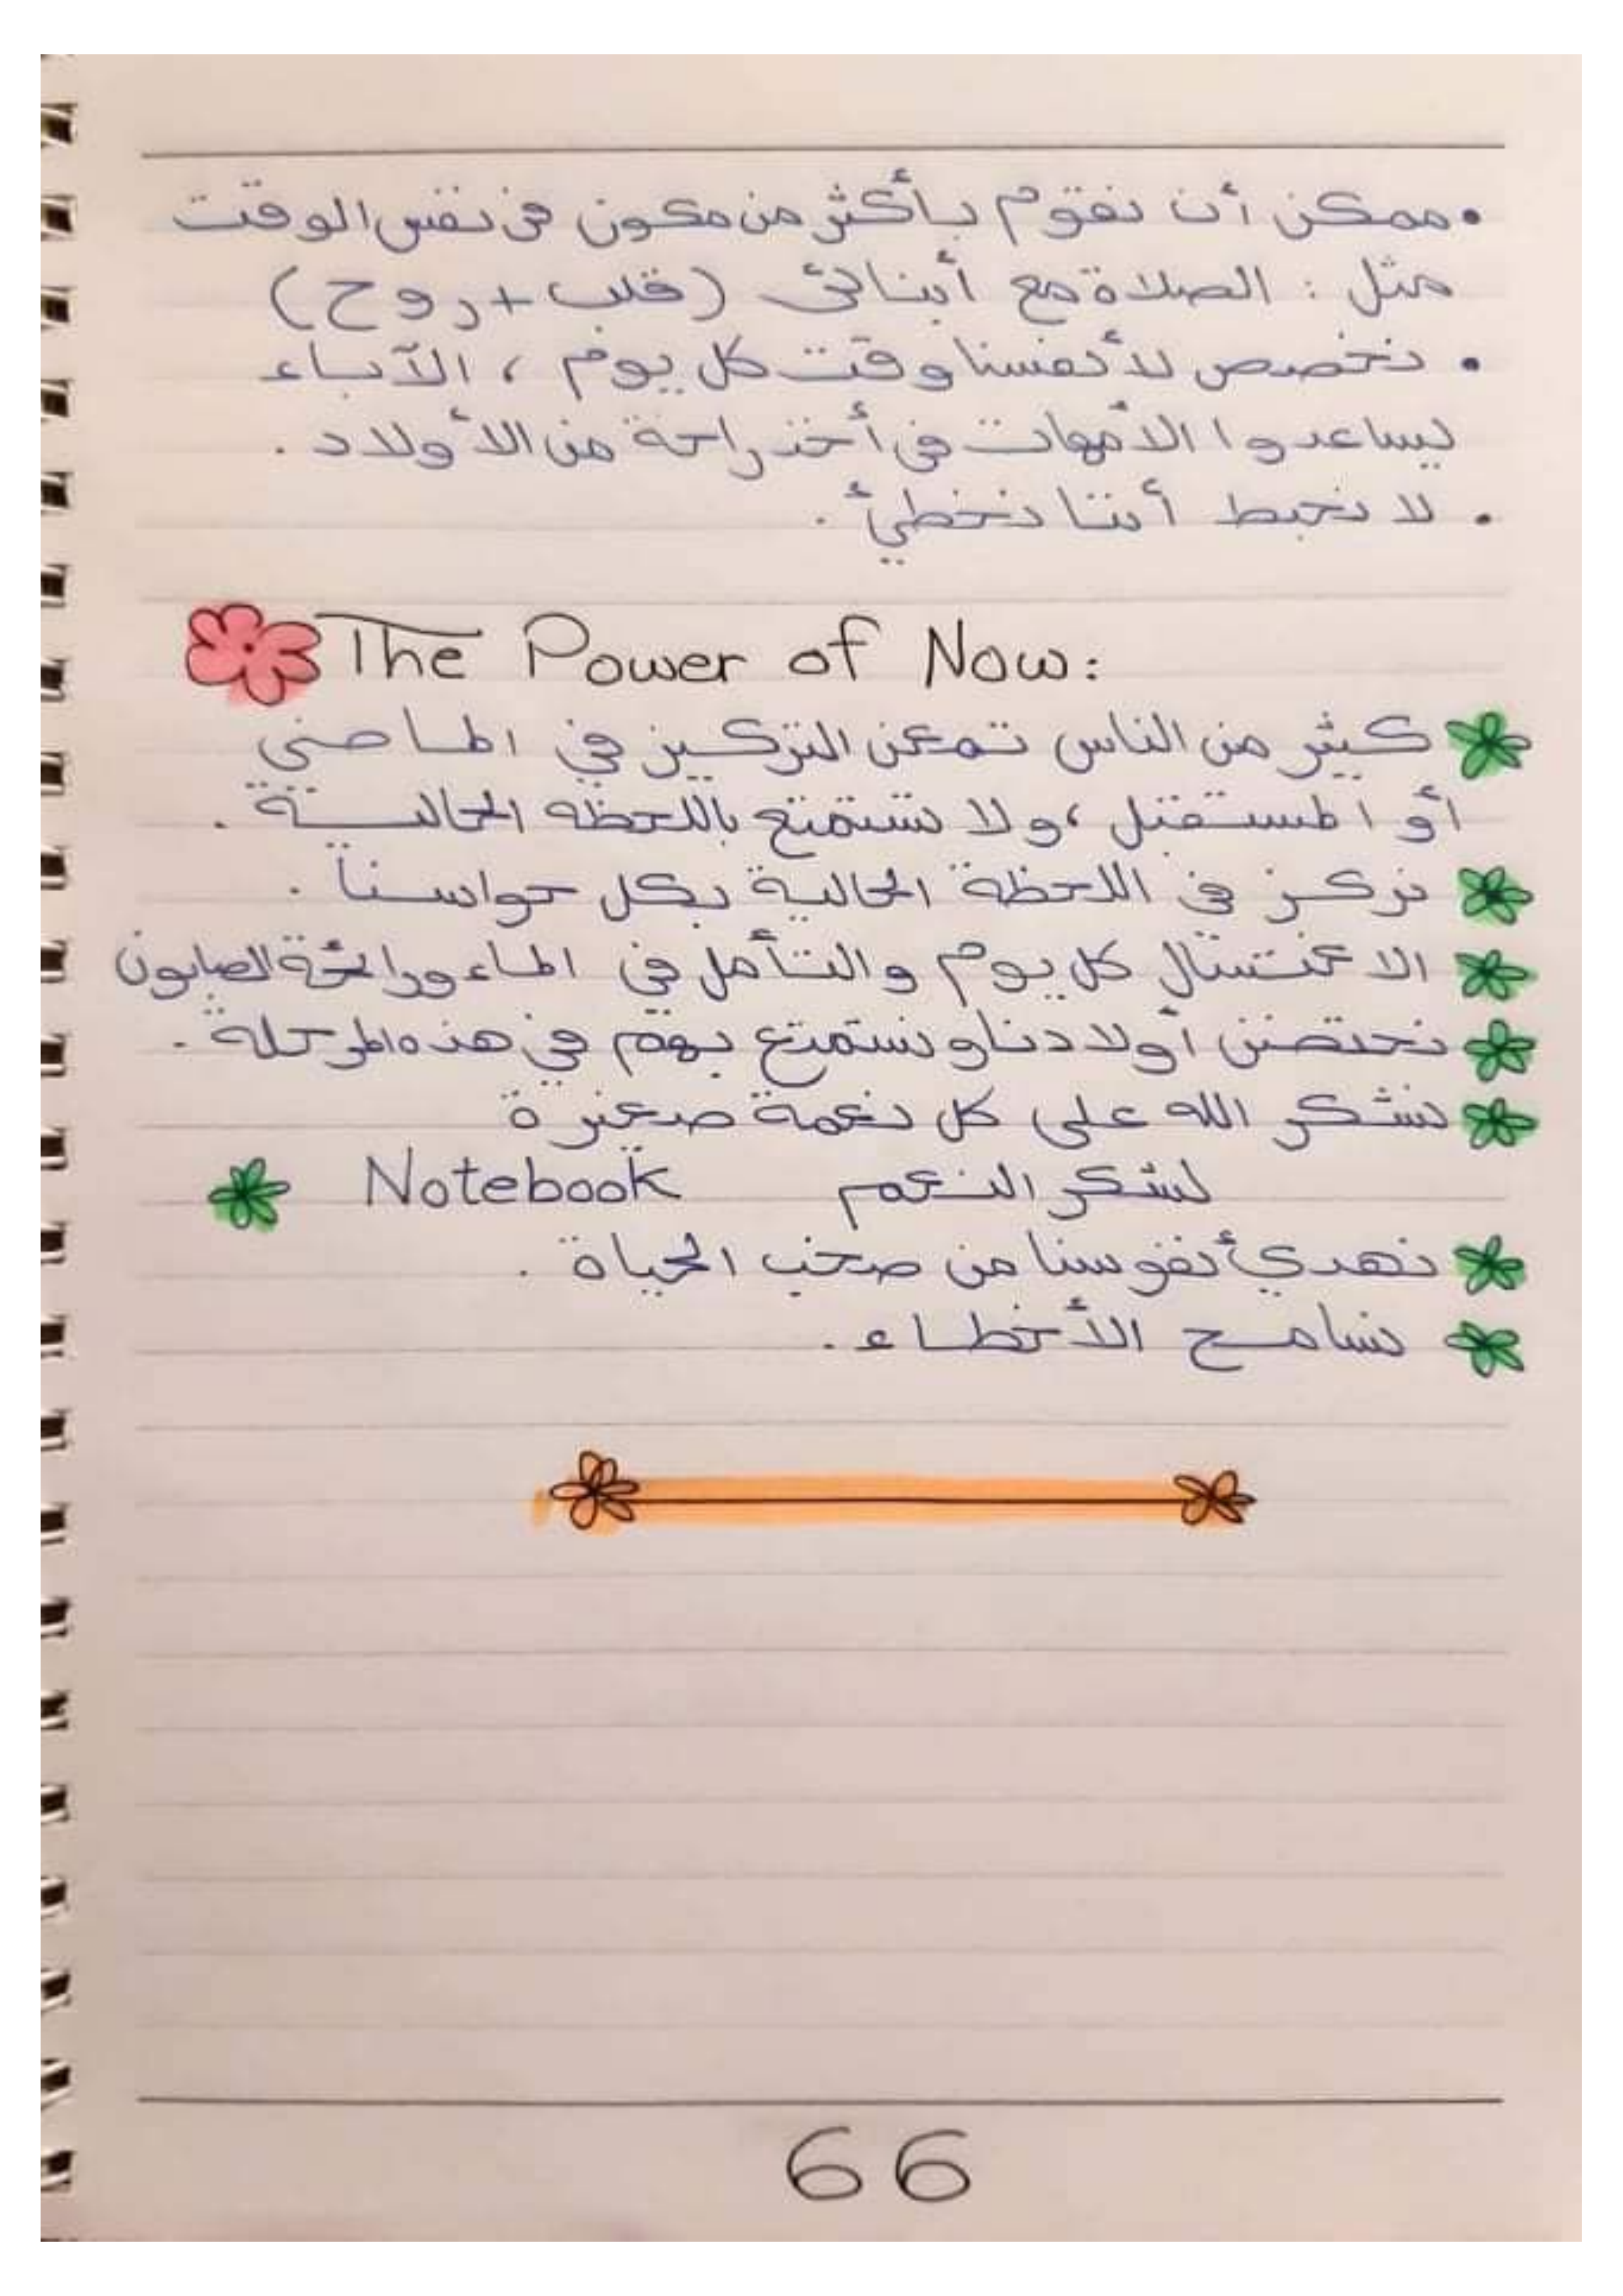 • ممكن أن نقوم بأكثر من مكون في نفس الوقت
مثل : الصلاة مع أبنائى (قلب + روح)
• نخصص لأنفسنا وقت كل يوم ، الآباء
يساعدوا الأمهات في أخذ راحة من الأولاد .
• لا نحبط أننا نخطئ .
The Power of Now:
كثير من الناس تمعن التركيز في الماضي
أو المستقبل ، ولا تستمتع باللحظة الحالية .
نركز في اللحظة الحالية بكل حواسنا .
الاغتسال كل يوم والتأمل في الماء ورائحة الصابون
نحتضن أولادنا ونستمتع بهم في هذه المرحلة .
نشكر الله على كل نعمة صغيرة
Notebook لشكر النعم
نهدي أنفوسنا من صخب الحياة .
نسامح الأخطاء .
66